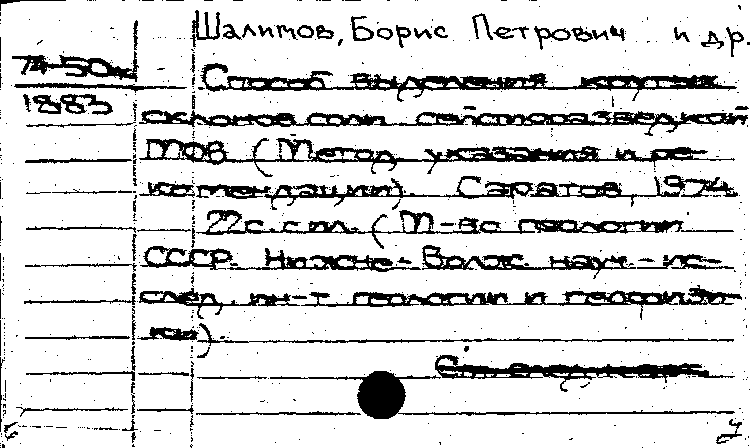 Шалимов, Борис Петрович и др.
74-50
1883
Способ выделения крутых
склонов соли сейсморазведкой
МОВ (Метод. указания и ре-
комендации). Саратов, 1974.
22с. с ил. (М-во геологии
СССР. Нижне-Волж. науч.-ис-
след. ин-т геологии и геофизи-
ки).
См. след. карт.